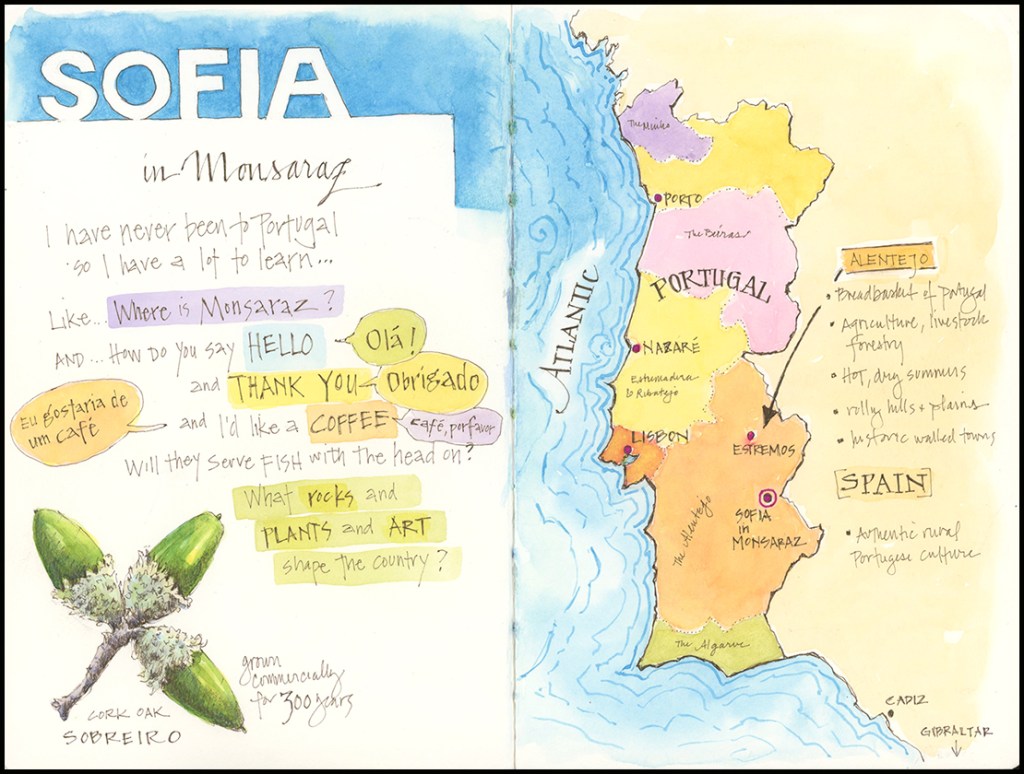 SOFIA
in Monsaraz
I have never been to Portugal
so I have a lot to learn...
Like... Where is Monsaraz?
AND... How do you say HELLO
Olá!
and THANK YOU
Obrigado
Eu gostaria de
um café
and I'd like a COFFEE
café, por favor
Will they serve FISH with the head on?
What rocks and
PLANTS and ART
shape the country?
CORK OAK
SOBREIRO
grown
commercially
for 300 years
ATLANTIC
The Minho
PORTO
The Beiras
PORTUGAL
NAZARÉ
Estremadura
Ribatejo
LISBON
ESTREMOS
SOFIA
in
MONSARAZ
The Alentejo
The Algarve
ALENTEJO
• Breadbasket of Portugal
• Agriculture, livestock
forestry
• Hot, dry summers
• rolly hills & plains
• historic walled towns
SPAIN
• Authentic rural
Portugese culture
CADIZ
GIBRALTAR